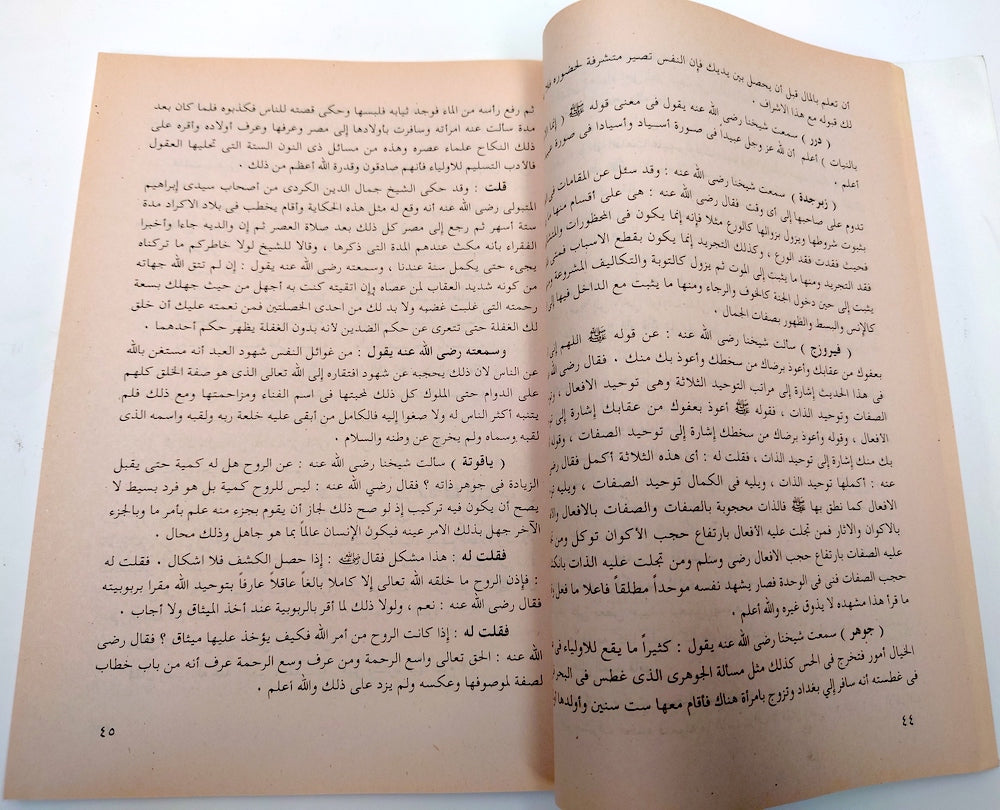 أن تعلم بالمال قبل أن يحصل بين يديك فإن النفس تصير متشرفة لحضوره
لك قبوله مع هذا الاشراف .
( درر ) سمعت شيخنا رضى الله عنه يقول فى معنى قوله ﷺ
بالنيات ) أعلم أن لله عز وجل عبيداً فى صورة أسياد وأسيادا فى صورة
أعلم .
( زبرجدة ) سمعت شيخنا رضى الله عنه : وقد سئل عن المقامات
تدوم على صاحبها إلى أى وقت فقال رضى الله عنه : هى على أقسام منها
بثبوت شروطها ويزول بزوالها كالورع مثلا فإنه إنما يكون فى المحظورات
فحيث فقدت فقد الورع ، وكذلك التجريد إنما يكون بقطع الاسباب
فقد التجريد ومنها ما يثبت إلى الموت ثم يزول كالتوبة والتكاليف المشروعة
يثبت إلى حين دخول الجنة كالخوف والرجاء ومنها ما يثبت مع الداخل فيها
كالإنس والبسط والظهور بصفات الجمال .
( فيروزج ) سألت شيخنا رضى الله عنه : عن قوله ﷺ اللهم
بعفوك من عقابك وأعوذ برضاك من سخطك وأعوذ بك منك . فقال رضى الله
فى هذا الحديث إشارة إلى مراتب التوحيد الثلاثة وهى توحيد الافعال ،
الصفات وتوحيد الذات ، فقوله ﷺ أعوذ بعفوك من عقابك إشارة إلى
الافعال ، وقوله وأعوذ برضاك من سخطك إشارة إلى توحيد الصفات ،
بك منك إشارة إلى توحيد الذات ، فقلت له : أى هذه الثلاثة أكمل فقال
عنه : أكملها توحيد الذات ، ويليه فى الكمال توحيد الصفات ، ويليه
الافعال كما نطق بها ﷺ فالذات محجوبة بالصفات والصفات بالافعال
بالاكوان والآثار فمن تجلت عليه الأفعال بارتفاع حجب الأكوان توكل ومن
عليه الصفات بارتفاع حجب الأفعال رضى وسلم ومن تجلت عليه الذات
حجب الصفات فنى فى الوحدة فصار يشهد نفسه موحداً مطلقاً فاعلا ما فعل
ما قرأ هذا مشهده لا يذوق غيره والله أعلم .
( جوهر ) سمعت شيخنا رضى الله عنه يقول : كثيراً ما يقع للاولياء
الخيال أمور فتخرج فى الحس كذلك مثل مسألة الجوهرى الذى غطس فى البحر
فى غطسته أنه سافر إلي بغداد وتزوج بامرأة هناك فأقام معها ست سنين وأولدها
٤٤
ثم رفع رأسه من الماء فوجد ثيابه فلبسها وحكى قصته للناس فكذبوه فلما كان بعد
مدة سألت عنه امرأته وسافرت بأولادها إلى مصر وعرفها وعرف أولاده وأقره على
ذلك النكاح علماء عصره وهذه من مسائل ذى النون الستة التى تحليها العقول
فالأدب التسليم للاولياء فأنهم صادقون وقدرة الله أعظم من ذلك .
قلت : وقد حكى الشيخ جمال الدين الكردى من أصحاب سيدى إبراهيم
المتبولى رضى الله عنه أنه وقع له مثل هذه الحكاية وأقام يخطب فى بلاد الاكراد مدة
ستة أسهر ثم رجع إلى مصر كل ذلك بعد صلاة العصر ثم إن والديه جاءا وأخبرا
الفقراء بأنه مكث عندهم المدة التى ذكرها ، وقالا للشيخ لولا خاطركم ما تركناه
يجىء حتى يكمل سنة عندنا ، وسمعته رضى الله عنه يقول : إن لم تتق الله جهاته
من كونه شديد العقاب لمن عصاه وإن اتقيته كنت به أجهل من حيث جهلك بسعة
رحمته التى غلبت غضبه ولا بد لك من احدى الخصلتين فمن نعمته عليك أن خلق
لك الغفلة حتى تتعرى عن حكم الضدين لأنه بدون الغفلة يظهر حكم أحدهما .
وسمعته رضى الله عنه يقول : من غوائل النفس شهود العبد أنه مستغن بالله
عن الناس لان ذلك يحجبه عن شهود افتقاره إلى الله تعالى الذى هو صفة الخلق كلهم
على الدوام حتى الملوك كل ذلك لمحبتها فى اسم الفناء ومزاحمتها ومع ذلك فلم
يتنبه أكثر الناس له ولا صغوا إليه فالكامل من أبقى عليه خلعة ربه ولقبه واسمه الذى
لقبه وسماه ولم يخرج عن وطنه والسلام .
( ياقوتة ) سألت شيخنا رضى الله عنه : عن الروح هل له كمية حتى يقبل
الزيادة فى جوهر ذاته ؟ فقال رضي الله عنه : ليس للروح كمية بل هو فرد بسيط لا
يصح أن يكون فيه تركيب إذ لو صح ذلك لجاز أن يقوم بجزء منه علم بأمر ما وبالجزء
الآخر جهل بذلك الامر عينه فيكون الإنسان عالماً بما هو جاهل وذلك محال .
فقلت له : هذا مشكل فقال رضي الله عنه : إذا حصل الكشف فلا اشكال . فقلت له
: فإذن الروح ما خلقه الله تعالى إلا كاملا بالغاً عاقلاً عارفاً بتوحيد الله مقرا بربوبيته
فقال رضى الله عنه : نعم ، ولولا ذلك لما أقر بالربوبية عند أخذ الميثاق ولا أجاب .
فقلت له : إذا كانت الروح من أمر الله فكيف يؤخذ عليها ميثاق ؟ فقال رضى
الله عنه : الحق تعالى واسع الرحمة ومن عرف وسع الرحمة عرف أنه من باب خطاب
لصفة لموصوفها وعكسه ولم يزد على ذلك والله أعلم .
٤٥